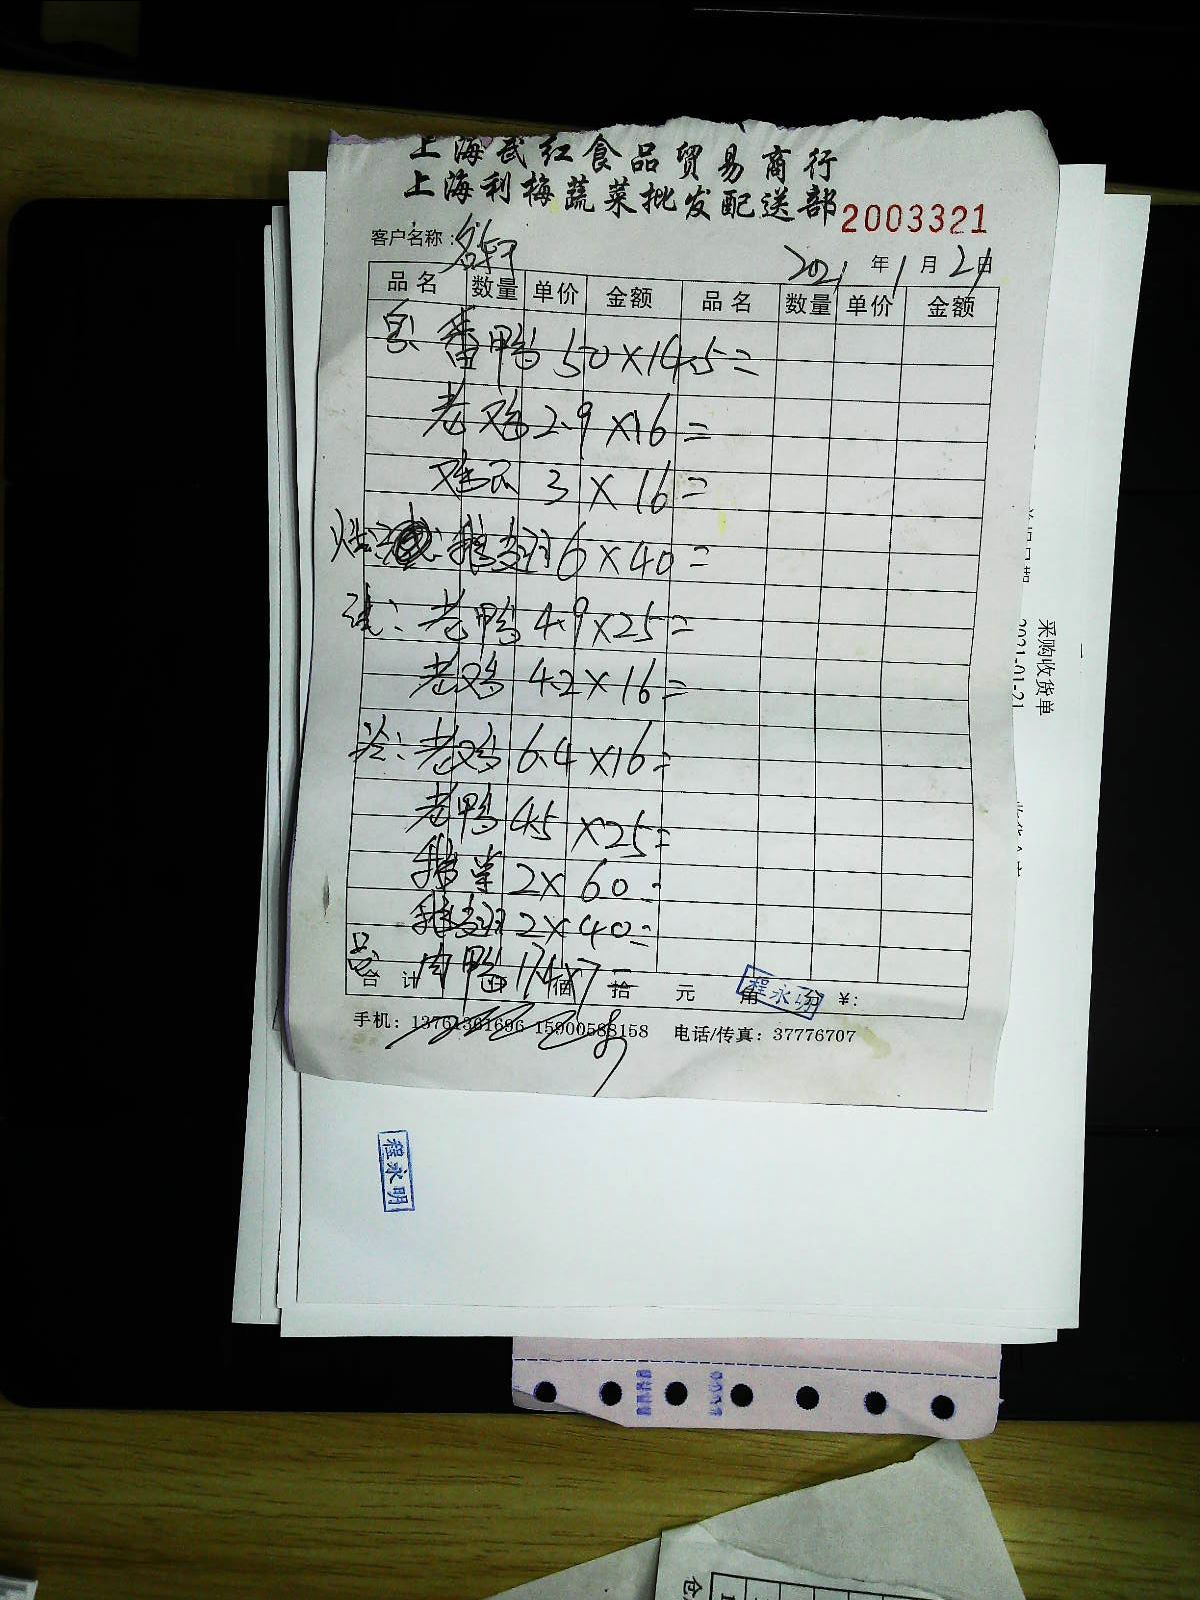 上海武红食品贸易商行
上海利梅蔬菜批发配送部
2003321
客户名称：名轩
2021 年 1 月 21 日
品名 数量 单价 金额 品名 数量 单价 金额
番鸭 50×14.5=
老鸡 2.9×16=
3×16=
鹅翅 6×40=
老鸭 4.9×25=
老鸡 4.2×16=
老鸡 6.4×16=
老鸭 4.5×25=
鹅掌 2×60=
鹅翅 2×40=
肉鸭 17.4×7=
合计 佰 拾 元 角 分 ¥:
程永明
手机：13761361696 15900588158 电话/传真：37776707
程永明
采购收货单
2021-01-21